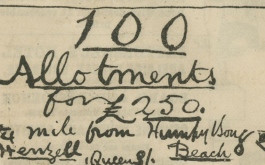 100
Allotments
for £250.
mile from Humpy Bong
Henzell, Queen St. Beach